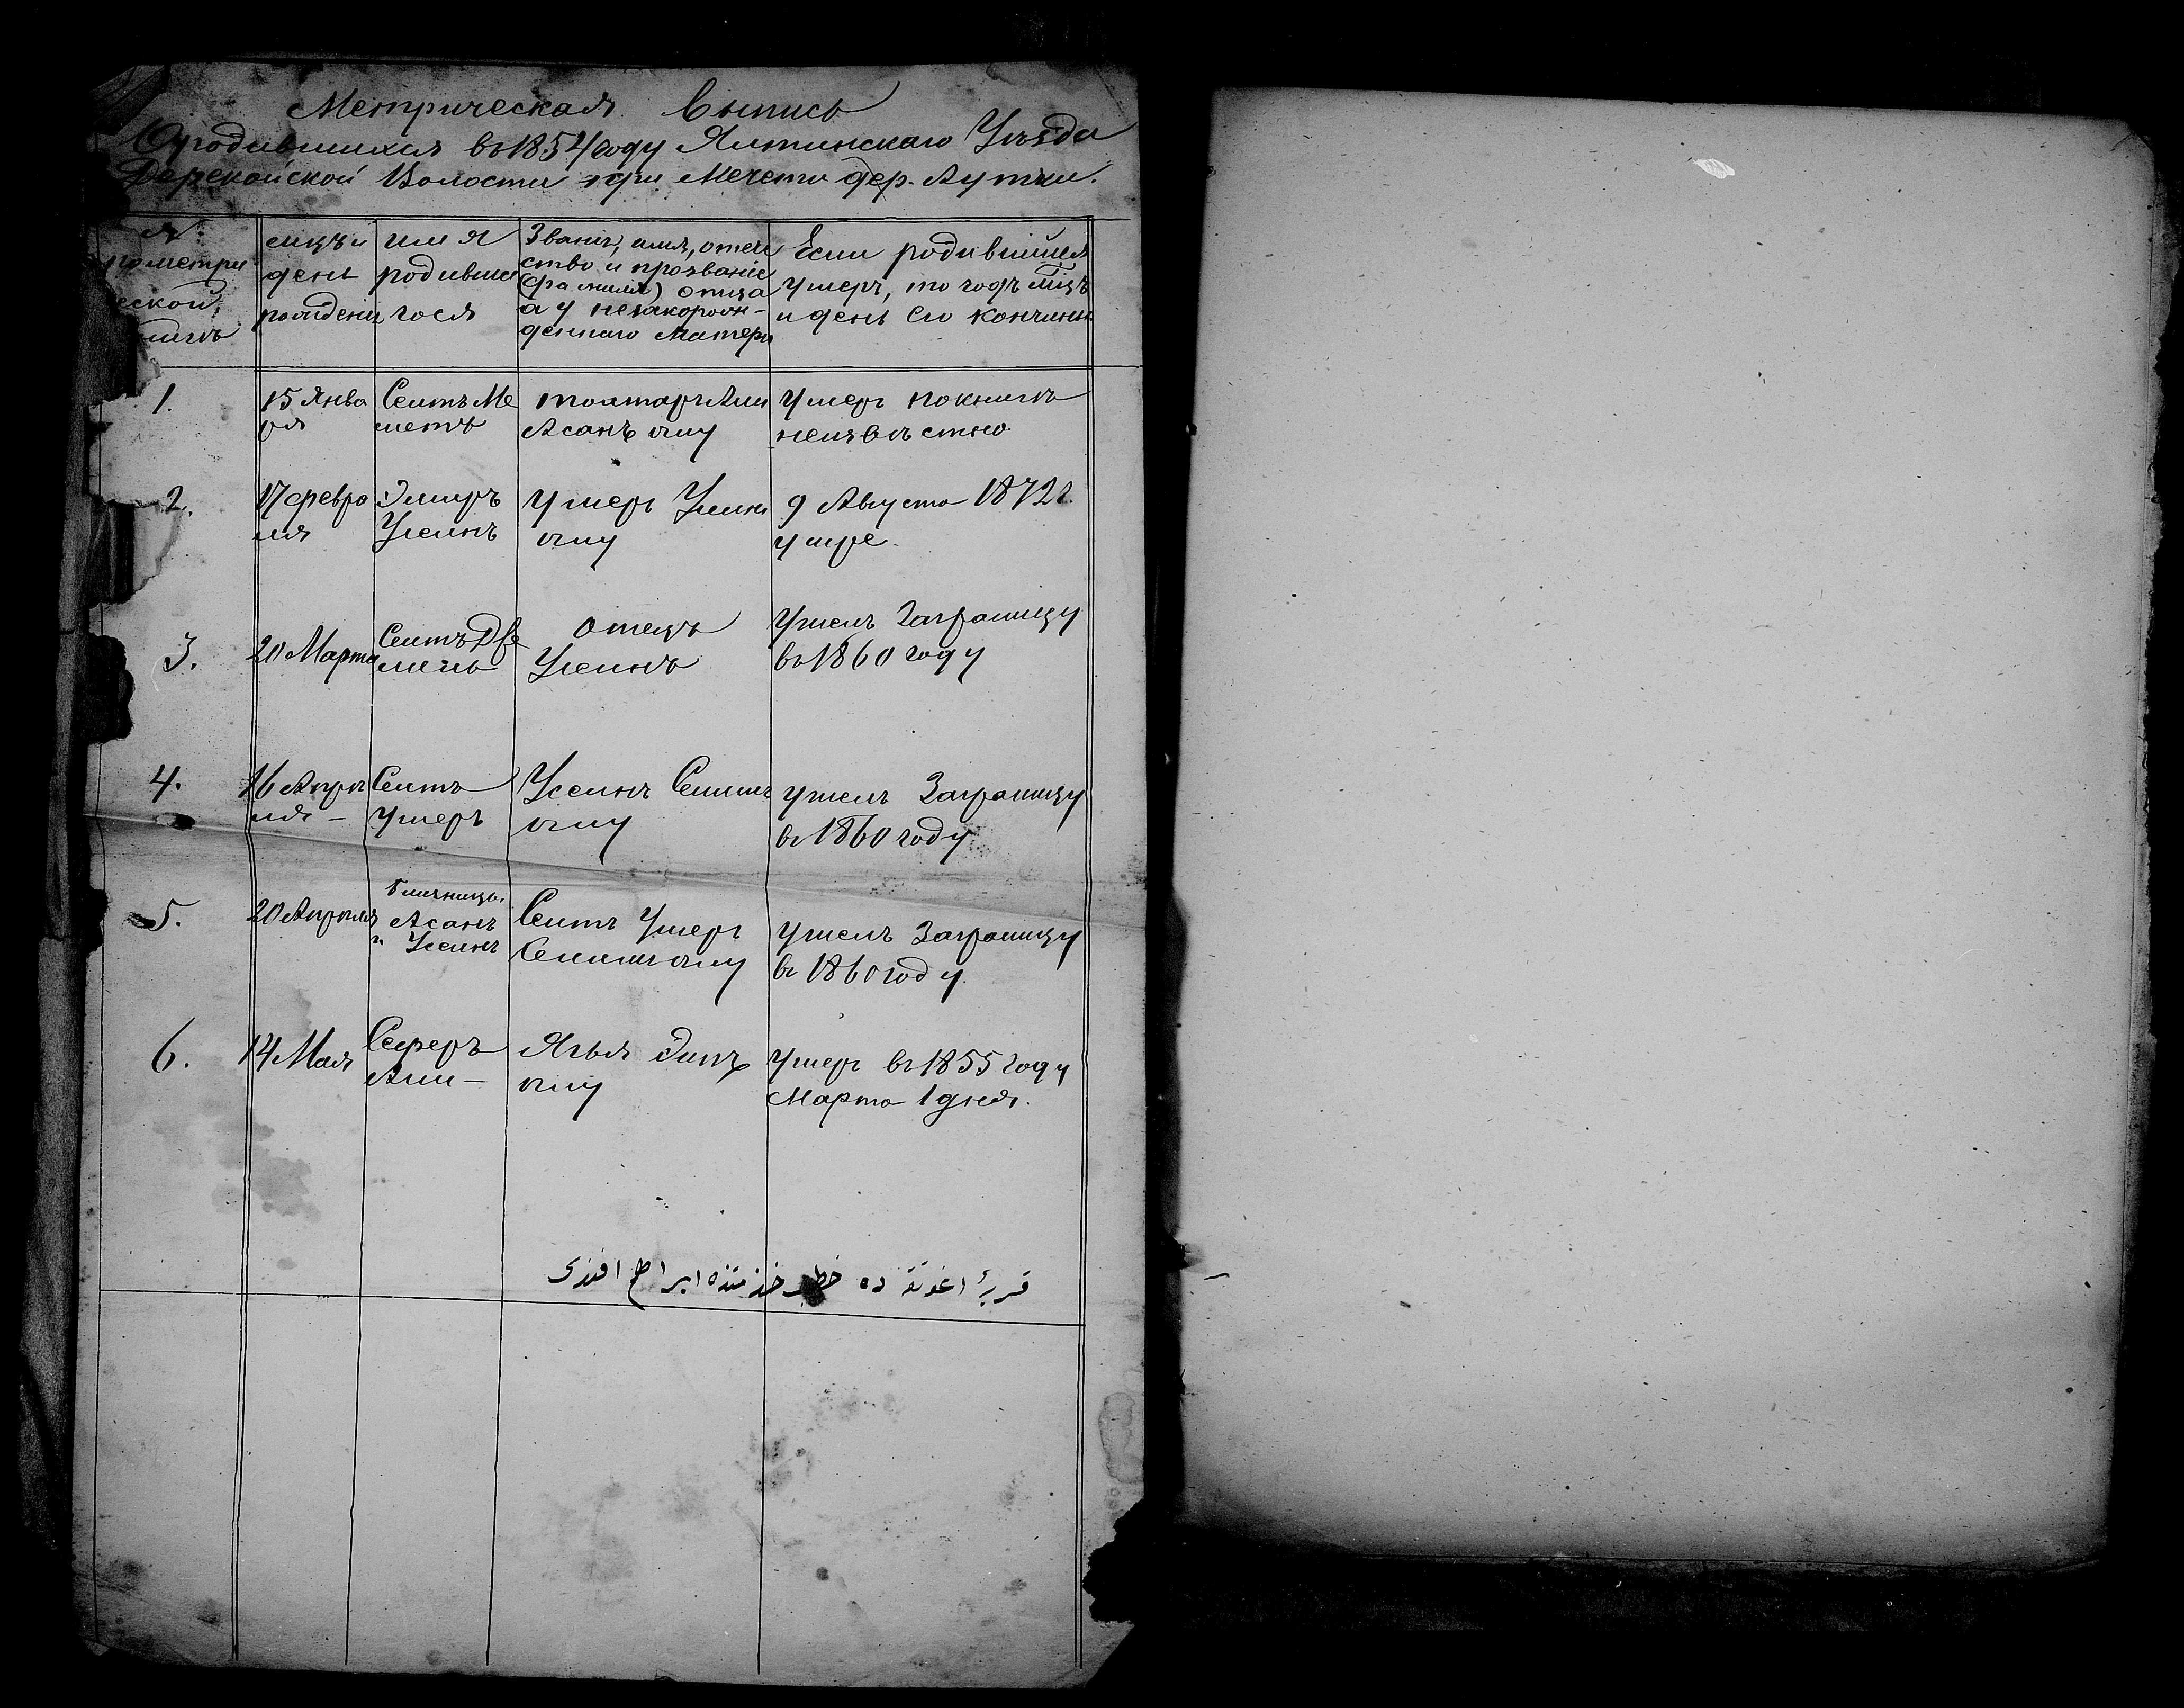 Метрическая Выпись
О родившихся въ 1854 году Ялтинскаго Уѣзда
Дерекойской Волости при Мечети дер. Аутки.
№
по метри
ческой
книгѣ
мцъ и
день
рожденія
имя
родивша
гося
Званіе, имя, отече
ство и прозваніе
(фамилія) отца
а у незакорожн-
деннаго Матери
Если родившійся
умеръ, то годъ мцъ
и день его кончины
1.
15 Янва
ря
Сеитъ Ме
метъ
Асанъ оглу
умеръ по книгѣ
неизвѣстно
2.
17 февра
ля
Эмиръ
Усеинъ
Умеръ Усеинъ
оглу
9 Августа 1872 г.
умре.
3.
20 Марта
Сеитъ Дже
милъ
отецъ
Усеинъ
Ушелъ Заграницу
въ 1860 году
4.
16 Апрѣ
ля –
Сеитъ
умеръ
Усеинъ Сеитъ
оглу
ушелъ Заграницу
въ 1860 году
5.
20 Апрѣля
Близнецы
Асанъ
и Усеинъ
Сеитъ Умеръ
оглу
ушелъ Заграницу
въ 1860 году
6.
14 Мая
Сеферъ
Али –
Ягья
оглу
умеръ въ 1855 году
Марта 1 дня.
قریهٔ اغوتقه ده خطیب خدمتنده ابراهیم افندی